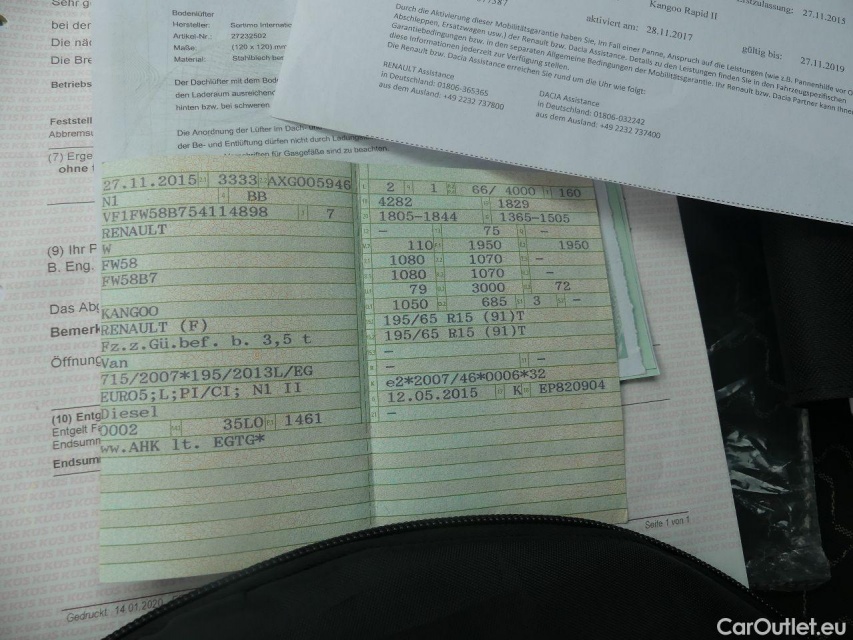 Sehr g
bei der
Die näc
Die Bre
Betriebs
Feststell
Abbremsu
(7) Erge
ohne
(9) Ihr F
B. Eng.
Das Abg
Bemerk
Öffnung
(10) Entg
Entgelt F
Endsumm
Endsum
Gedruckt 14.01.2020
Seite 1 von 1
Bodenlüfter
Hersteller: Sortimo Internation
Artikel-Nr.: 27232502
Maße: (120 x 120) mm
Material: Stahlblech bes
Der Dachlüfter mit dem Bode
den Laderaum ausreichend
hinten bzw. bei schweren
Die Anordnung der Lüfter im Dach- un
der Be- und Entlüftung dürfen nicht durch Ladung
schriften für Gasgefäße sind zu beachten.
Kangoo Rapid II
stzulassung: 27.11.2015
aktiviert am: 28.11.2017
gültig bis: 27.11.2019
Durch die Aktivierung dieser Mobilitätsgarantie haben Sie, im Fall einer Panne, Anspruch auf die Leistungen (wie z.B. Pannenhilfe vor O
Abschleppen, Ersatzwagen usw.) der Renault bzw. Dacia Assistance. Details zu den Leistungen finden Sie in den Fahrzeugspezifischen
Garantiebedingungen bzw. in den separaten Allgemeine Bedingungen der Mobilitätsgarantie. Ihr Renault bzw. Dacia Partner kann Ihnen
diese Informationen jederzeit zur Verfügung stellen.
Die Renault bzw. Dacia Assistance erreichen Sie rund um die Uhr wie folgt:
RENAULT Assistance
in Deutschland: 01806-365365
aus dem Ausland: +49 2232 737800
DACIA Assistance
in Deutschland: 01806-032242
aus dem Ausland: +49 2232 737400
27.11.2015 3333 AXG005946
N1 BB
VF1FW58B754114898 7
RENAULT
W
FW58
FW58B7
KANGOO
RENAULT (F)
Fz.z.Gü.bef. b. 3,5 t
Van
715/2007*195/2013L/EG
EURO5;L;PI/CI; N1 II
Diesel
0002 35L0 1461
ww.AHK lt. EGTG*
2 1 66/ 4000 160
4282 1829
1805-1844 1365-1505
– 75 –
110 1950 1950
1080 1070 –
1080 1070 –
79 3000 72
1050 685 3 –
195/65 R15 (91)T
195/65 R15 (91)T
–
– –
e2*2007/46*0006*32
12.05.2015 K EP820904
–
CarOutlet.eu